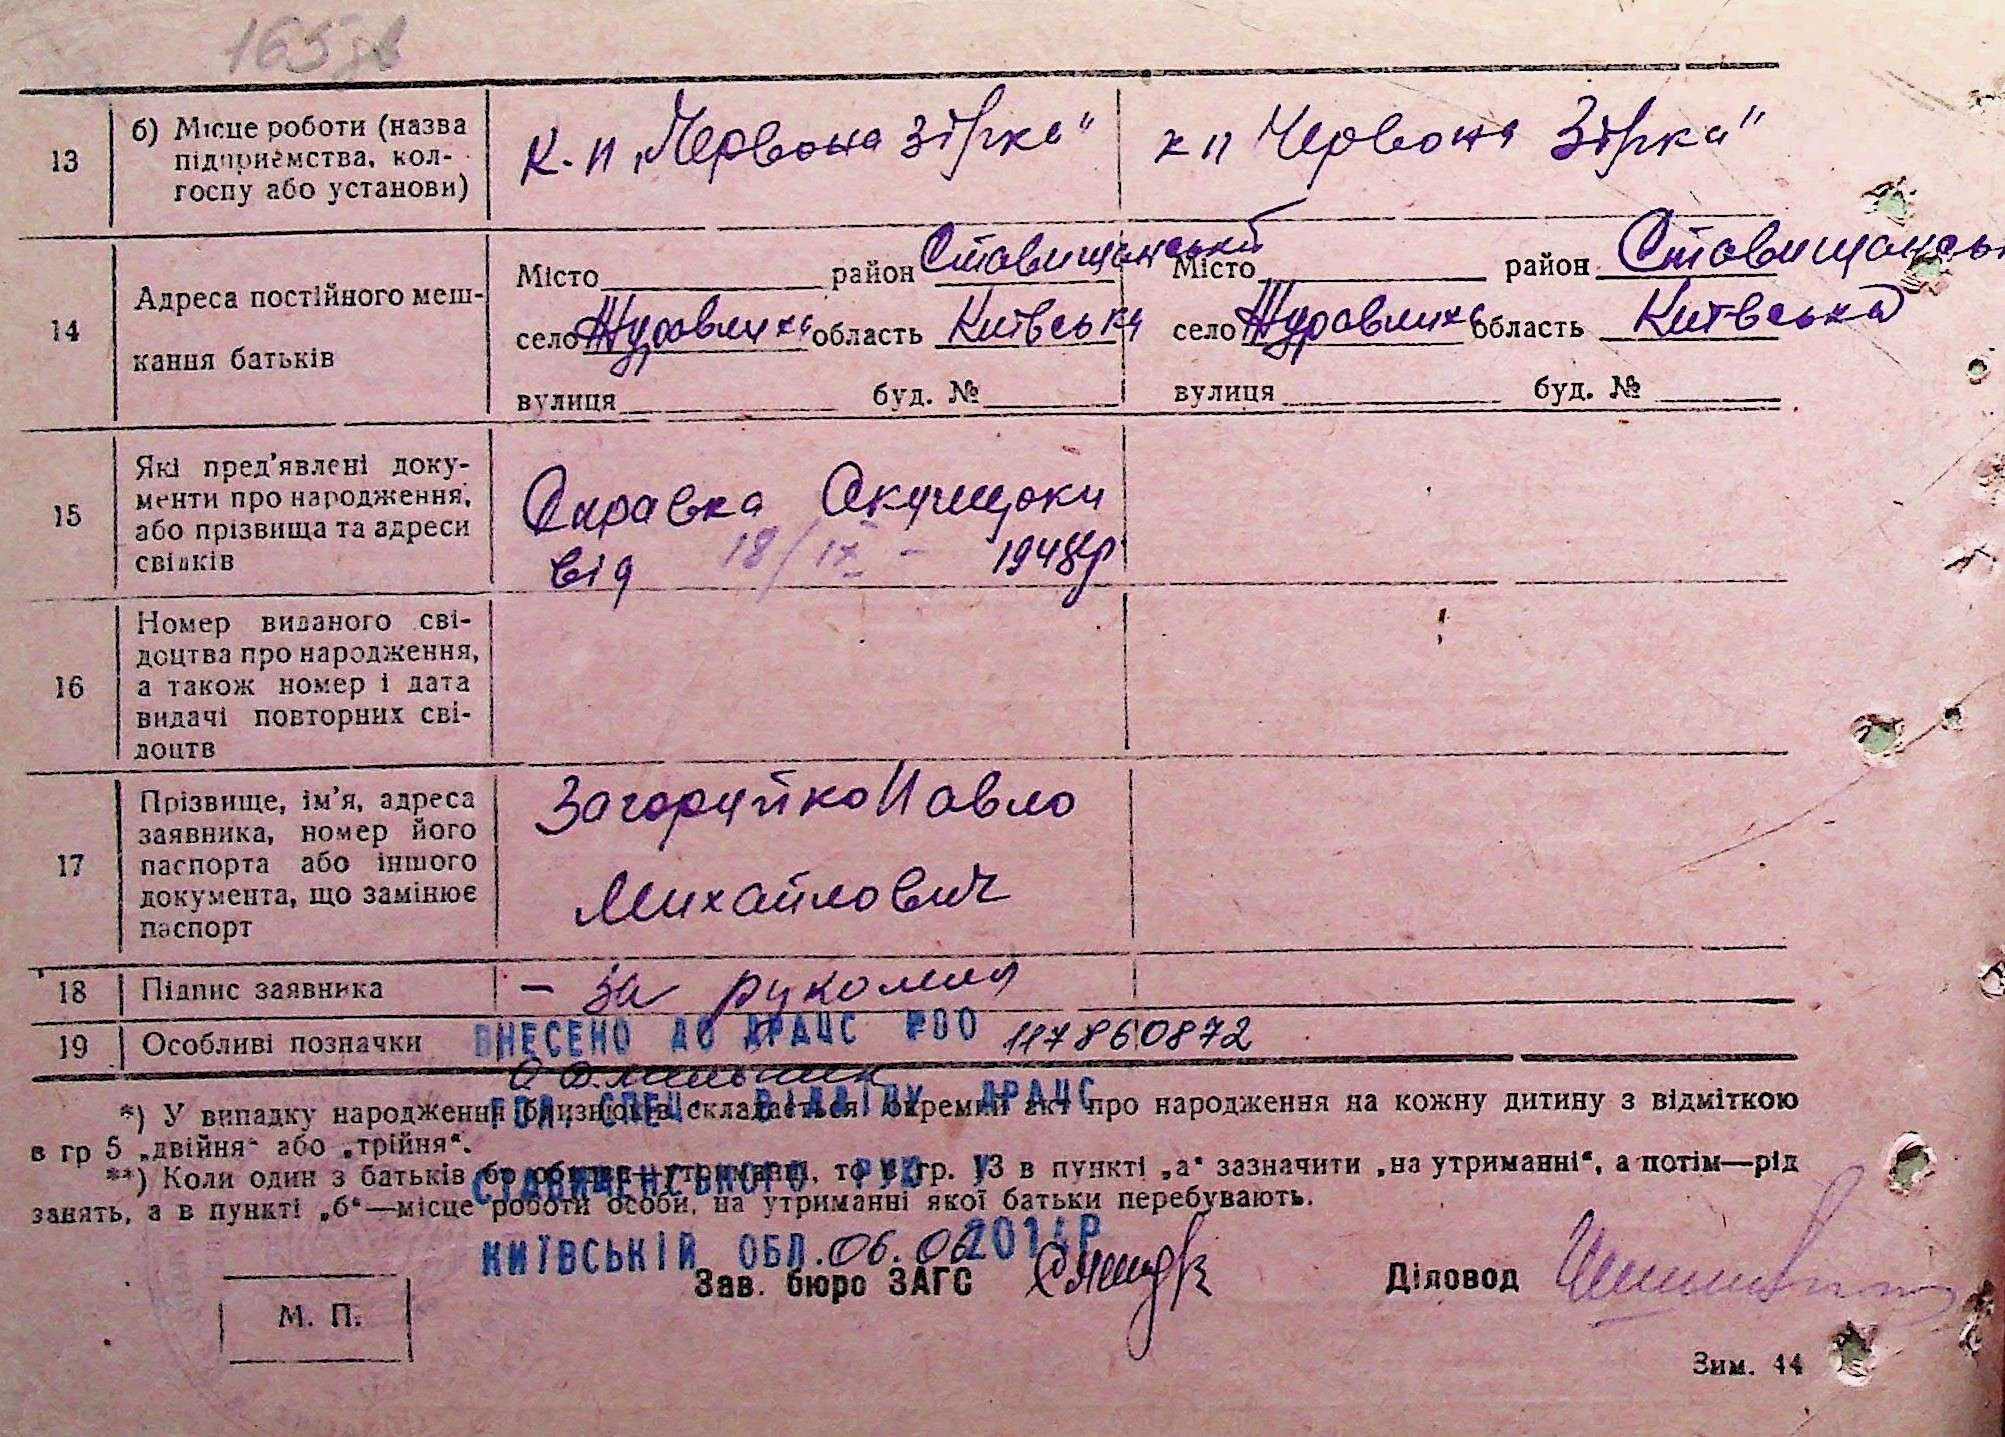 165зв
13
б) Місце роботи (назва
підприємства, кол-
госпу або установи)
к-п „Червона Зірка“
к п Червона Зірка“
14
Адреса постійного меш-
кання батьків
Місто район Ставищанський
село Журавлиха область Київська
вулиця буд. №
Місто район Ставищансь
село Журавлиха область Київська
вулиця буд. №
15
Які пред'явлені доку-
менти про народження,
або прізвища та адреси
свідків
Справка Акушорки
від 18/IX - 1948р
16
Номер виданого сві-
доцтва про народження,
а також номер і дата
видачі повторних сві-
доцтв
17
Прізвище, ім'я, адреса
заявника, номер його
паспорта або іншого
документа, що замінює
паспорт
Загоруйко Павло
Михайлович
18
Підпис заявника
- за
19
Особливі позначки
ВНЕСЕНО ДО ДРАЦС 117860872
ГОЛ. СПЕЦ. ВІДДІЛУ ДРАЦС
*) У випадку народження близнюків складається окремий акт про народження на кожну дитину з відміткою
в гр 5 „двійня“ або „трійня“.
**) Коли один з батьків на утриманні, то в гр. 13 в пункті „а“ зазначити „на утриманні“, а потім—рід
занять, а в пункті „б“—місце роботи особи, на утриманні якої батьки перебувають.
СТАВИЩЕНСЬКОГО РУЮ У
КИЇВСЬКІЙ ОБЛ. 06.06 2014Р
Зав. бюро ЗАГС
Діловод
М. П.
Зим. 44